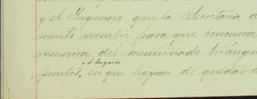 y el Ingeniero que la Secretaría d
mento nombre para que concurra
mensura del mencionado triángu
ó lugares
puntos, en que hayan de quedar c